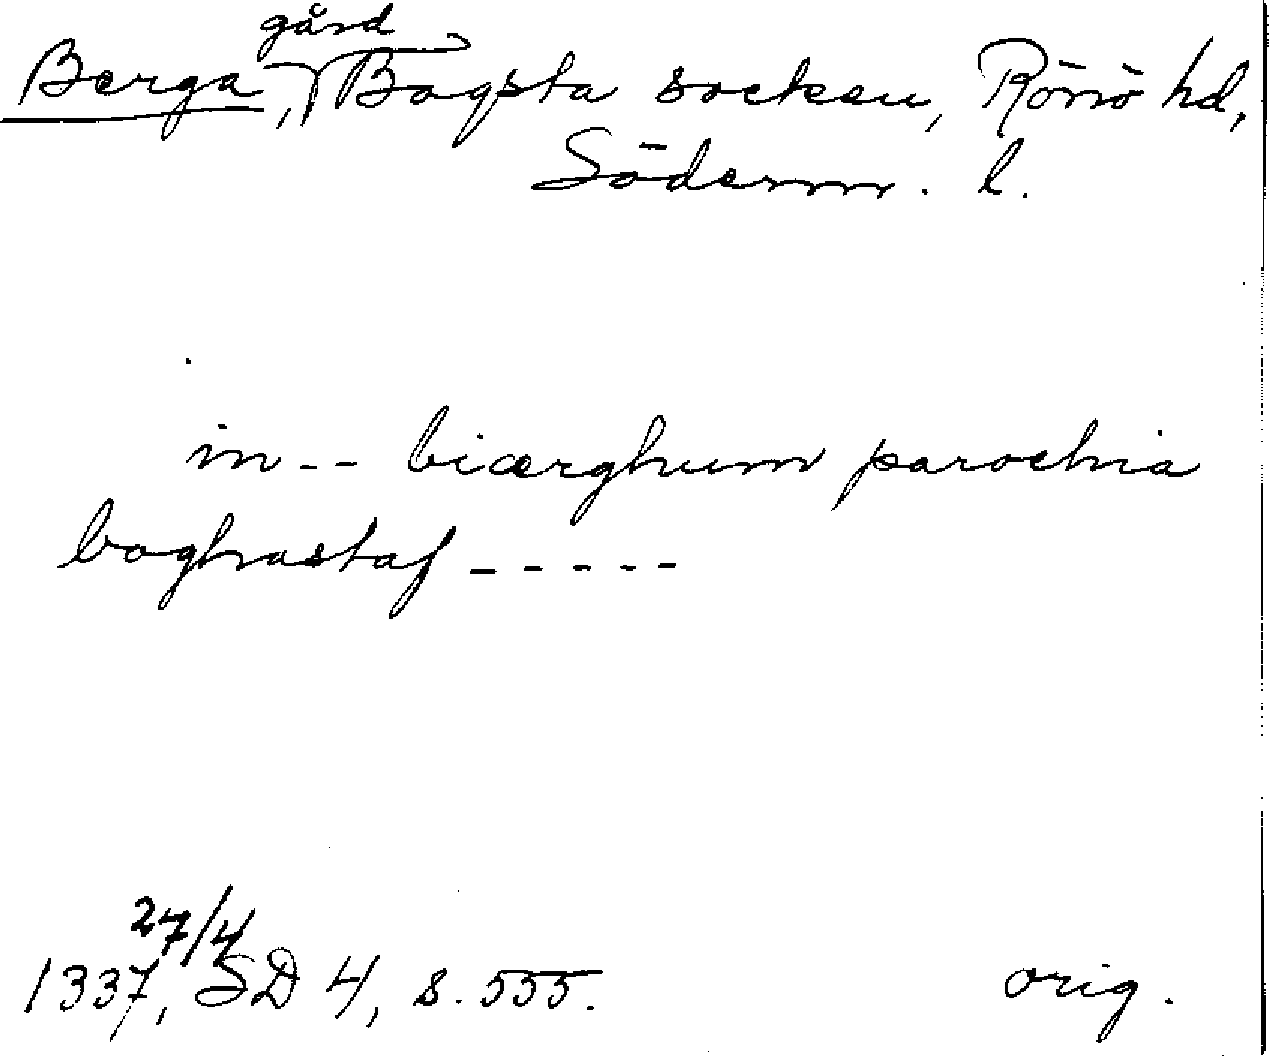 Berga, gård Bogsta socken, Rönö hd,
Söderm. l.
in -- biærghum parochia
boghastaf -----
1337, 27/4 SD 4, s. 555. orig.